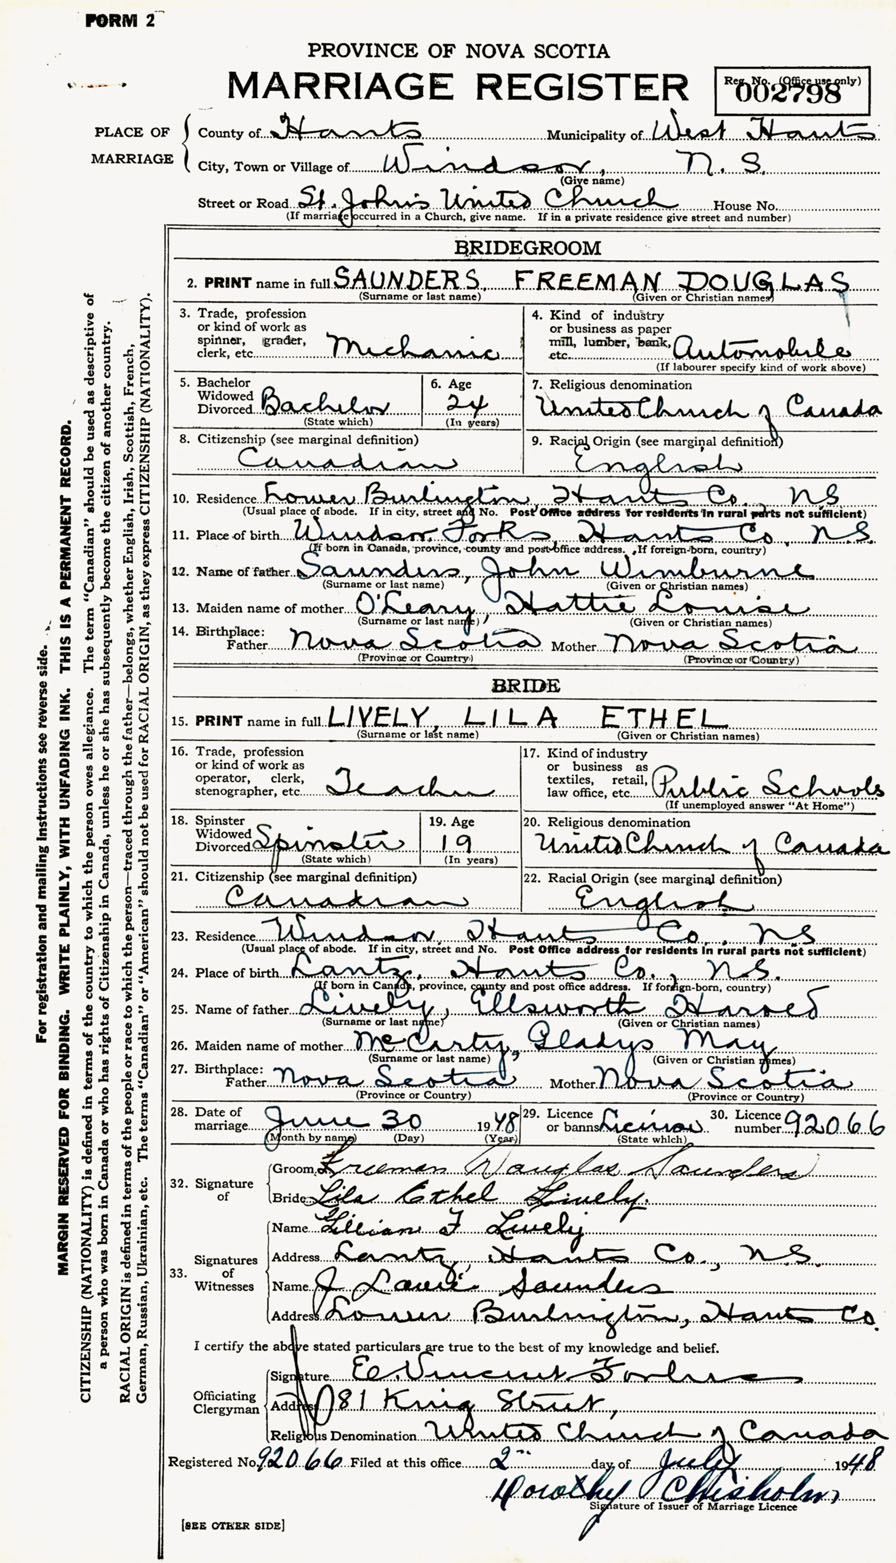 FORM 2
PROVINCE OF NOVA SCOTIA
MARRIAGE REGISTER
Reg. No. (Office use only)
002798
PLACE OF MARRIAGE
County of Hants Municipality of West Hants
City, Town or Village of Windsor, N. S.
(Give name)
Street or Road St. John's United Church House No.
(If marriage occurred in a Church, give name. If in a private residence give street and number)
BRIDEGROOM
2. PRINT name in full SAUNDERS, FREEMAN DOUGLAS
(Surname or last name) (Given or Christian names)
3. Trade, profession or kind of work as spinner, grader, clerk, etc. Mechanic
4. Kind of industry or business as paper mill, lumber, bank, etc. Automobile
(If labourer specify kind of work above)
5. Bachelor Widowed Divorced Bachelor
(State which)
6. Age 24
(In years)
7. Religious denomination
United Church of Canada
8. Citizenship (see marginal definition)
Canadian
9. Racial Origin (see marginal definition)
English
10. Residence Lower Burlington, Hants Co., NS
(Usual place of abode. If in city, street and No. Post Office address for residents in rural parts not sufficient)
11. Place of birth Windsor Forks, Hants Co., N.S.
(If born in Canada, province, county and post office address. If foreign-born, country)
12. Name of father Saunders, John Wimburne
(Surname or last name) (Given or Christian names)
13. Maiden name of mother O'Leary, Hattie Louise
(Surname or last name) (Given or Christian names)
14. Birthplace:
Father Nova Scotia Mother Nova Scotia
(Province or Country) (Province or Country)
BRIDE
15. PRINT name in full LIVELY, LILA ETHEL
(Surname or last name) (Given or Christian names)
16. Trade, profession or kind of work as operator, clerk, stenographer, etc. Teacher
17. Kind of industry or business as textiles, retail, law office, etc. Public Schools
(If unemployed answer "At Home")
18. Spinster Widowed Divorced Spinster
(State which)
19. Age 19
(In years)
20. Religious denomination
United Church of Canada
21. Citizenship (see marginal definition)
Canadian
22. Racial Origin (see marginal definition)
English
23. Residence Windsor, Hants Co., NS
(Usual place of abode. If in city, street and No. Post Office address for residents in rural parts not sufficient)
24. Place of birth Lantz, Hants Co., N.S.
(If born in Canada, province, county and post office address. If foreign-born, country)
25. Name of father Lively, Ellsworth Harold
(Surname or last name) (Given or Christian names)
26. Maiden name of mother McCarty, Gladys May
(Surname or last name) (Given or Christian names)
27. Birthplace:
Father Nova Scotia Mother Nova Scotia
(Province or Country) (Province or Country)
28. Date of marriage June 30 1948
(Month by name) (Day) (Year)
29. Licence or banns License
(State which)
30. Licence number 92066
32. Signature of
Groom Freeman Douglas Saunders
Bride Lila Ethel Lively.
33. Signatures of Witnesses
Name Lillian F Lively
Address Lantz, Hants Co., N.S.
Name J Saunders
Address Lower Burlington, Hants Co.
I certify the above stated particulars are true to the best of my knowledge and belief.
Officiating Clergyman
Signature E. Vincent Forbes
Address 81 King Street,
Religious Denomination United Church of Canada
Registered No. 92066 Filed at this office 2nd day of July 1948
Dorothy Chisholm
Signature of Issuer of Marriage Licence
[SEE OTHER SIDE]
For registration and mailing instructions see reverse side.
MARGIN RESERVED FOR BINDING. WRITE PLAINLY, WITH UNFADING INK. THIS IS A PERMANENT RECORD.
CITIZENSHIP (NATIONALITY) is defined in terms of the country to which the person owes allegiance. The term "Canadian" should be used as descriptive of
a person who was born in Canada or who has rights of Citizenship in Canada, unless he or she has subsequently become the citizen of another country.
RACIAL ORIGIN is defined in terms of the people or race to which the person—traced through the father—belongs, whether English, Irish, Scottish, French,
German, Russian, Ukrainian, etc. The terms "Canadian" or "American" should not be used for RACIAL ORIGIN, as they express CITIZENSHIP (NATIONALITY).